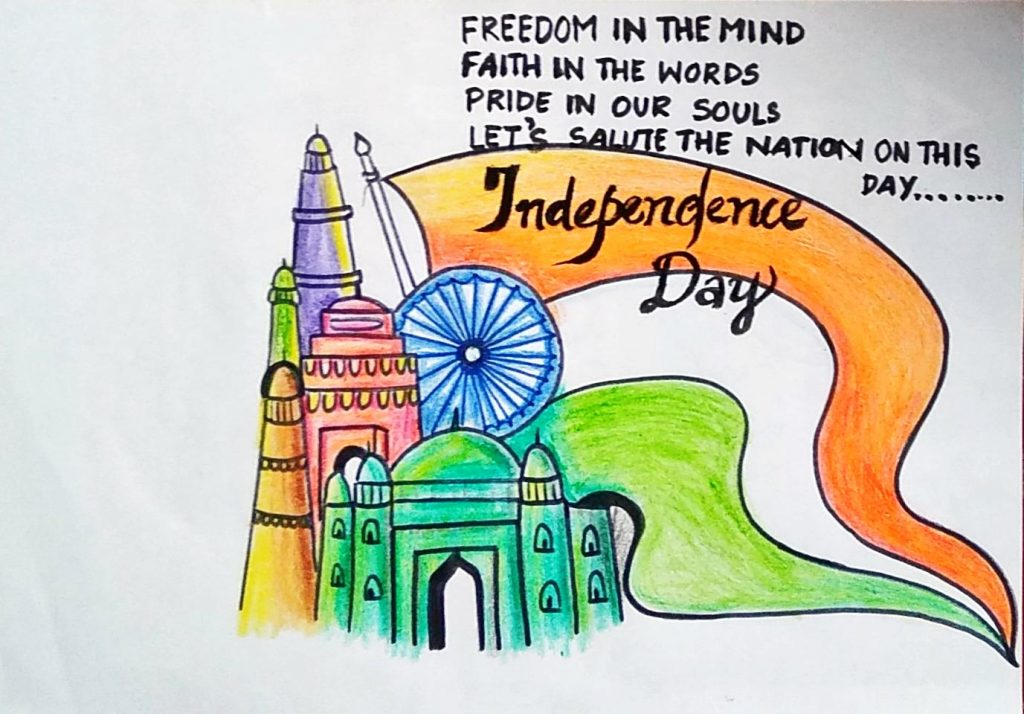 FREEDOM IN THE MIND
FAITH IN THE WORDS
PRIDE IN OUR SOULS
LET'S SALUTE THE NATION ON THIS
DAY.........
Independence
Day